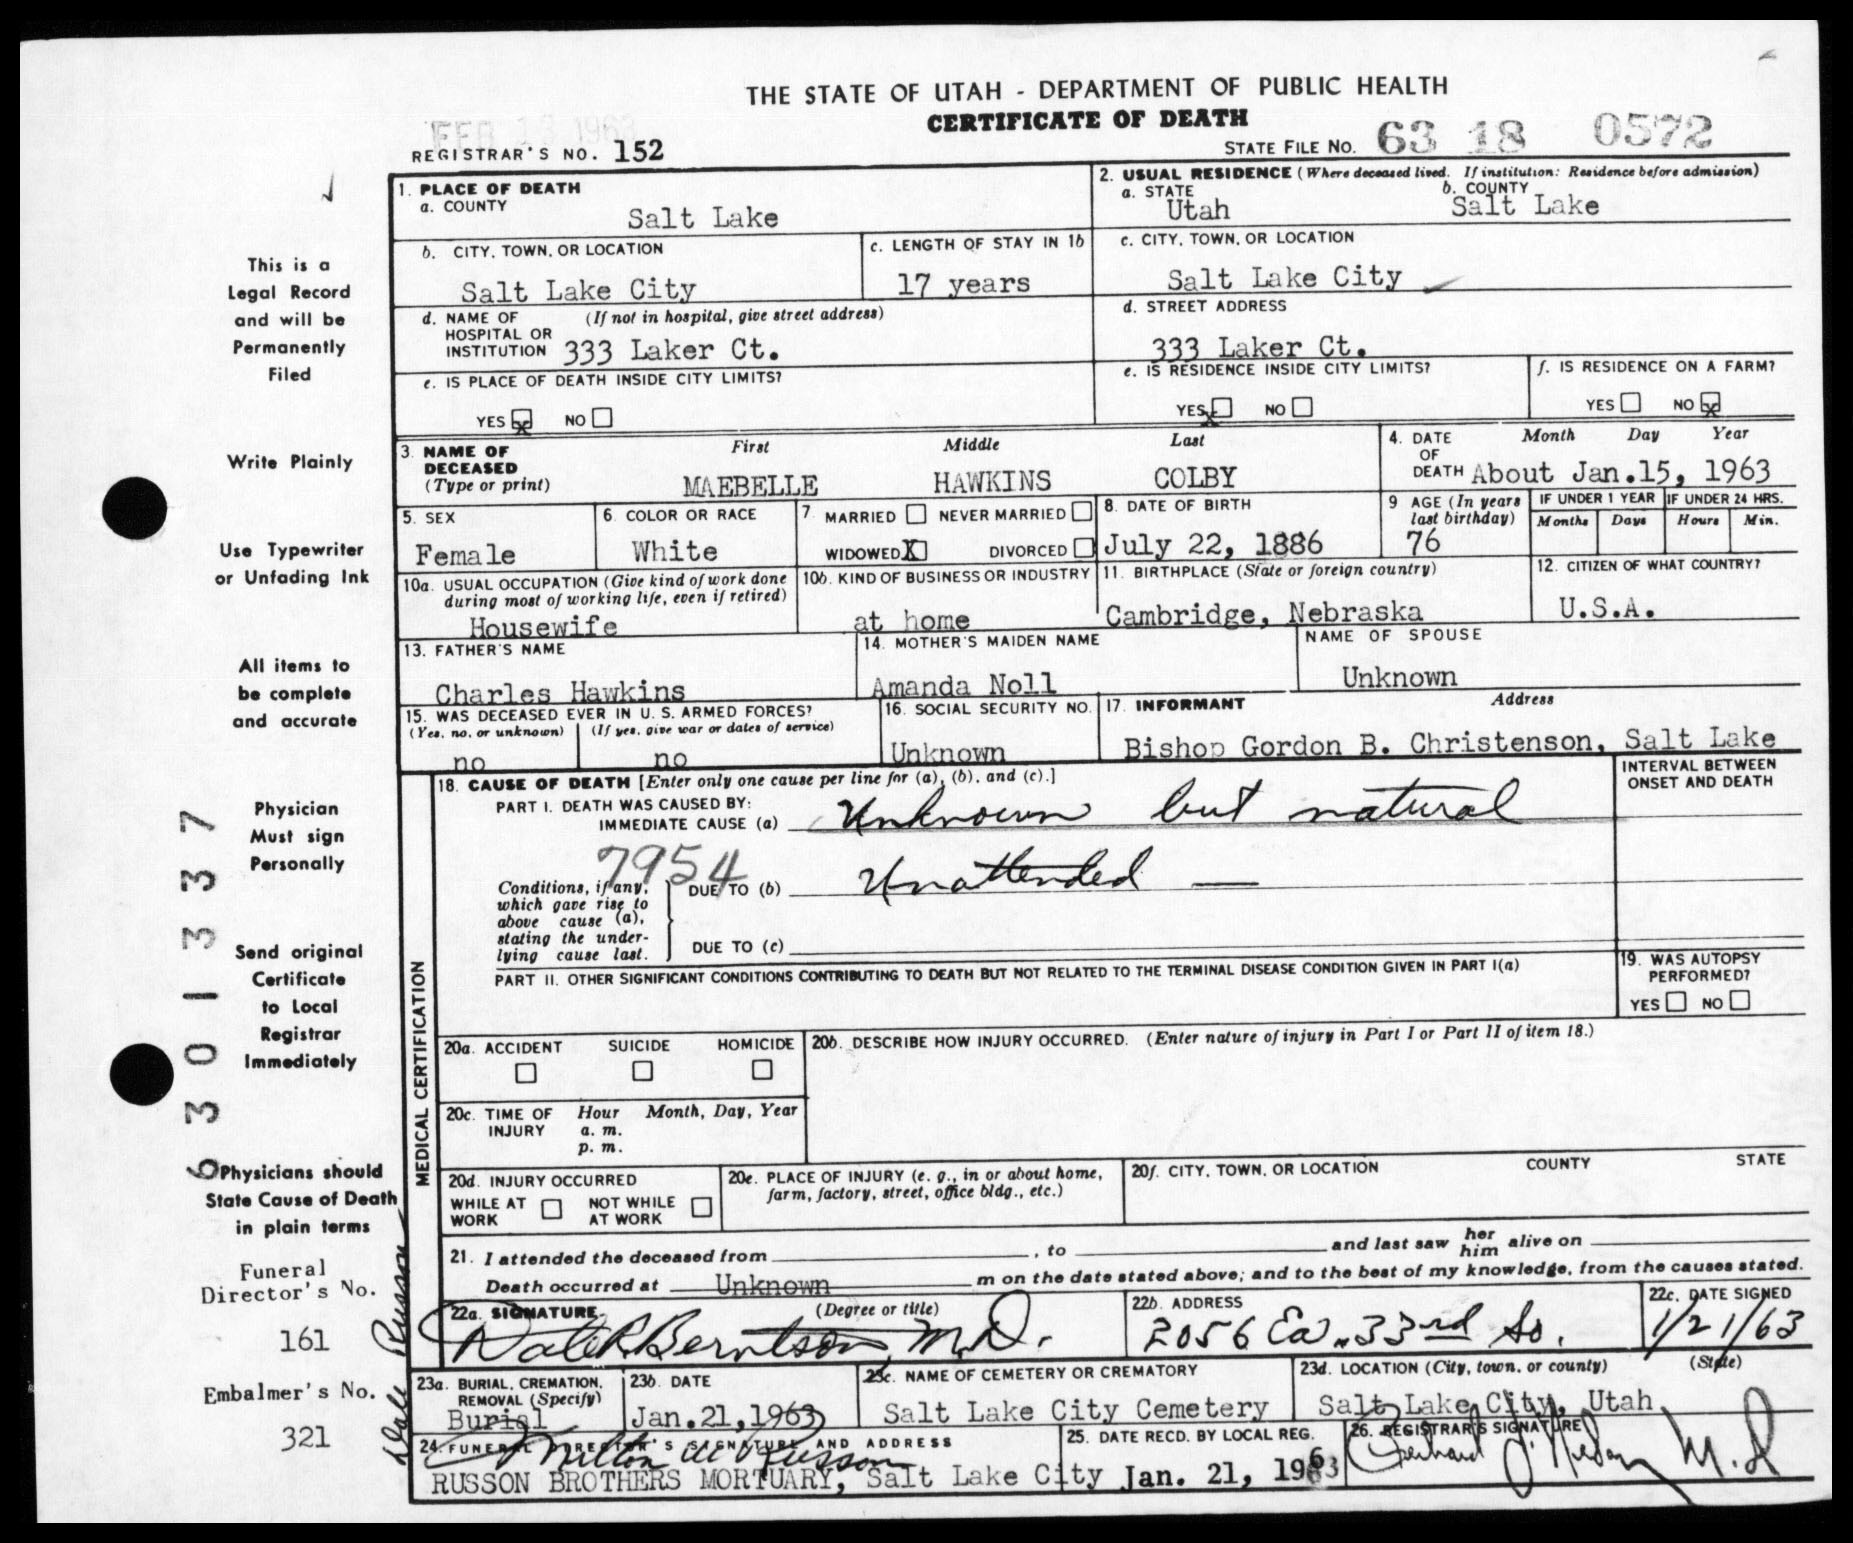 THE STATE OF UTAH - DEPARTMENT OF PUBLIC HEALTH
CERTIFICATE OF DEATH
FEB 13 1963
REGISTRAR'S NO. 152
STATE FILE NO. 63 18 0572
1. PLACE OF DEATH
a. COUNTY
Salt Lake
2. USUAL RESIDENCE (Where deceased lived. If institution: Residence before admission)
a. STATE
Utah
b. COUNTY
Salt Lake
b. CITY, TOWN, OR LOCATION
Salt Lake City
c. LENGTH OF STAY IN 1b
17 years
c. CITY, TOWN, OR LOCATION
Salt Lake City
d. NAME OF HOSPITAL OR INSTITUTION (If not in hospital, give street address)
333 Laker Ct.
d. STREET ADDRESS
333 Laker Ct.
e. IS PLACE OF DEATH INSIDE CITY LIMITS?
YES X NO
e. IS RESIDENCE INSIDE CITY LIMITS?
YES X NO
f. IS RESIDENCE ON A FARM?
YES NO X
3. NAME OF DECEASED (Type or print)
First Middle Last
MAEBELLE HAWKINS COLBY
4. DATE OF DEATH
Month Day Year
About Jan.15, 1963
5. SEX
Female
6. COLOR OR RACE
White
7. MARRIED NEVER MARRIED
WIDOWED X DIVORCED
8. DATE OF BIRTH
July 22, 1886
9 AGE (In years last birthday)
76
IF UNDER 1 YEAR
Months Days
IF UNDER 24 HRS.
Hours Min.
10a. USUAL OCCUPATION (Give kind of work done during most of working life, even if retired)
Housewife
10b. KIND OF BUSINESS OR INDUSTRY
at home
11. BIRTHPLACE (State or foreign country)
Cambridge, Nebraska
12. CITIZEN OF WHAT COUNTRY?
U.S.A.
13. FATHER'S NAME
Charles Hawkins
14. MOTHER'S MAIDEN NAME
Amanda Noll
NAME OF SPOUSE
Unknown
15. WAS DECEASED EVER IN U. S. ARMED FORCES?
(Yes, no, or unknown) (If yes, give war or dates of service)
no no
16. SOCIAL SECURITY NO.
Unknown
17. INFORMANT Address
Bishop Gordon B. Christenson, Salt Lake
MEDICAL CERTIFICATION
18. CAUSE OF DEATH [Enter only one cause per line for (a), (b), and (c).]
INTERVAL BETWEEN ONSET AND DEATH
PART I. DEATH WAS CAUSED BY:
IMMEDIATE CAUSE (a) Unknown but natural
7954
Conditions, if any, which gave rise to above cause (a), stating the underlying cause last.
DUE TO (b) Unattended —
DUE TO (c)
PART II. OTHER SIGNIFICANT CONDITIONS CONTRIBUTING TO DEATH BUT NOT RELATED TO THE TERMINAL DISEASE CONDITION GIVEN IN PART I(a)
19. WAS AUTOPSY PERFORMED?
YES NO
20a. ACCIDENT SUICIDE HOMICIDE
20b. DESCRIBE HOW INJURY OCCURRED. (Enter nature of injury in Part I or Part II of item 18.)
20c. TIME OF INJURY Hour Month, Day, Year
a. m.
p. m.
20d. INJURY OCCURRED
WHILE AT WORK NOT WHILE AT WORK
20e. PLACE OF INJURY (e. g., in or about home, farm, factory, street, office bldg., etc.)
20f. CITY, TOWN, OR LOCATION COUNTY STATE
21. I attended the deceased from , to and last saw her him alive on
Death occurred at Unknown m on the date stated above; and to the best of my knowledge, from the causes stated.
22a. SIGNATURE (Degree or title)
Dale R. Berntson, M.D.
22b. ADDRESS
2056 Ea. 33rd So.
22c. DATE SIGNED
1/21/63
23a. BURIAL, CREMATION, REMOVAL (Specify)
Burial
23b. DATE
Jan.21,1963
23c. NAME OF CEMETERY OR CREMATORY
Salt Lake City Cemetery
23d. LOCATION (City, town, or county) (State)
Salt Lake City, Utah
24. FUNERAL DIRECTOR'S SIGNATURE AND ADDRESS
Milton W Russon
RUSSON BROTHERS MORTUARY, Salt Lake City
25. DATE RECD. BY LOCAL REG.
Jan. 21, 1963
26. REGISTRAR'S SIGNATURE
M.D
This is a
Legal Record
and will be
Permanently
Filed
Write Plainly
Use Typewriter
or Unfading Ink
All items to
be complete
and accurate
Physician
Must sign
Personally
Send original
Certificate
to Local
Registrar
Immediately
Physicians should
State Cause of Death
in plain terms
Funeral
Director's No.
161
Embalmer's No.
321
Dale Russon
6301337